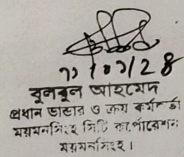 বুলবুল আহমেদ
প্রধান ভান্ডার ও ক্রয় কর্মকর্তা
ময়মনসিংহ সিটি কর্পোরেশন
ময়মনসিংহ।